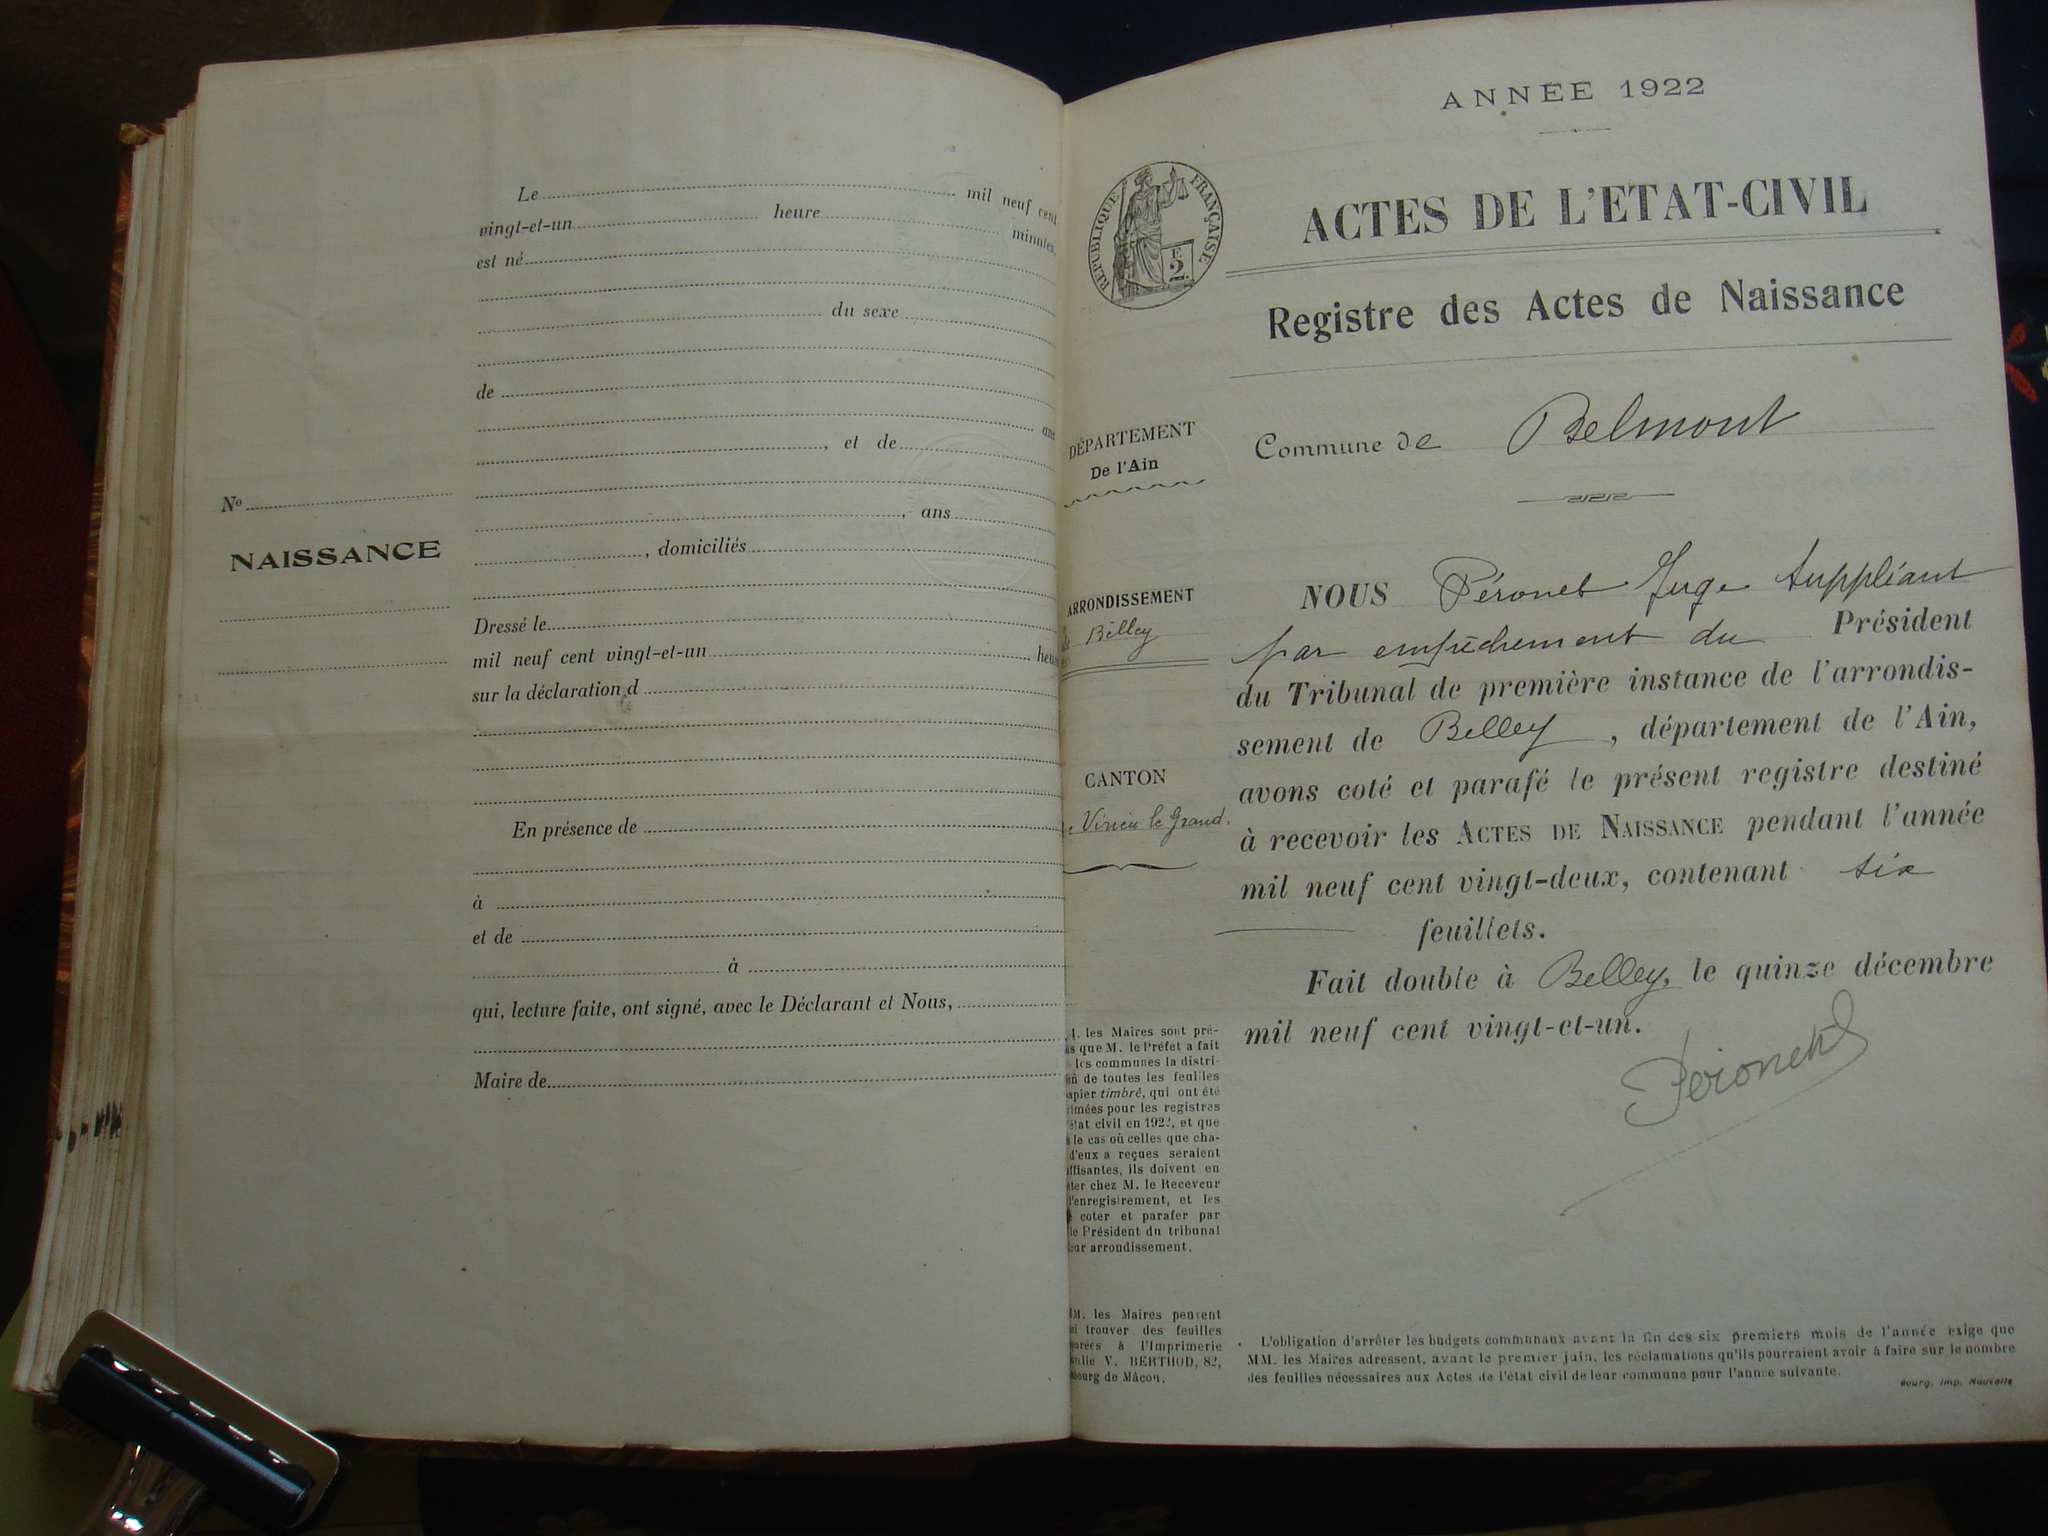 Le mil neuf cent
vingt-et-un heure minutes,
est né
du sexe
de
ans
, et de
, ans
, domiciliés
Dressé le
mil neuf cent vingt-et-un heu
sur la déclaration d
En présence de
à
et de
à
qui, lecture faite, ont signé, avec le Déclarant et Nous,
Maire de
No
NAISSANCE
ANNÉE 1922
REPUBLIQUE FRANÇAISE
F
2
ACTES DE L'ETAT-CIVIL
Registre des Actes de Naissance
DÉPARTEMENT
De l'Ain
Commune de Belmont
ARRONDISSEMENT
de Belley
CANTON
Virieu le Grand.
NOUS Péronet Juge Suppléant
par empêchement du Président
du Tribunal de première instance de l'arrondis-
sement de Belley, département de l'Ain,
avons coté et parafé le présent registre destiné
à recevoir les ACTES DE NAISSANCE pendant l'année
mil neuf cent vingt-deux, contenant six
feuillets.
Fait double à Belley, le quinze décembre
mil neuf cent vingt-et-un.
Péronet
M. les Maires sont pré-
s que M. le Préfet a fait
les communes la distri-
n de toutes les feuilles
apier timbré, qui ont été
imées pour les registres
état civil en 1922, et que
le cas où celles que cha-
d'eux a reçues seraient
ffisantes, ils doivent en
ter chez M. le Receveur
l'enregistrement, et les
coter et parafer par
le Président du tribunal
eur arrondissement.
MM. les Maires peuvent
si trouver des feuilles
arées à l'Imprimerie
V. BERTHOD, 82,
bourg de Mâcon.
L'obligation d'arrêter les budgets communaux avant la fin des six premiers mois de l'année exige que
MM. les Maires adressent, avant le premier juin, les réclamations qu'ils pourraient avoir à faire sur le nombre
des feuilles nécessaires aux Actes de l'état civil de leur commune pour l'année suivante.
Bourg, Imp. Nouvelle